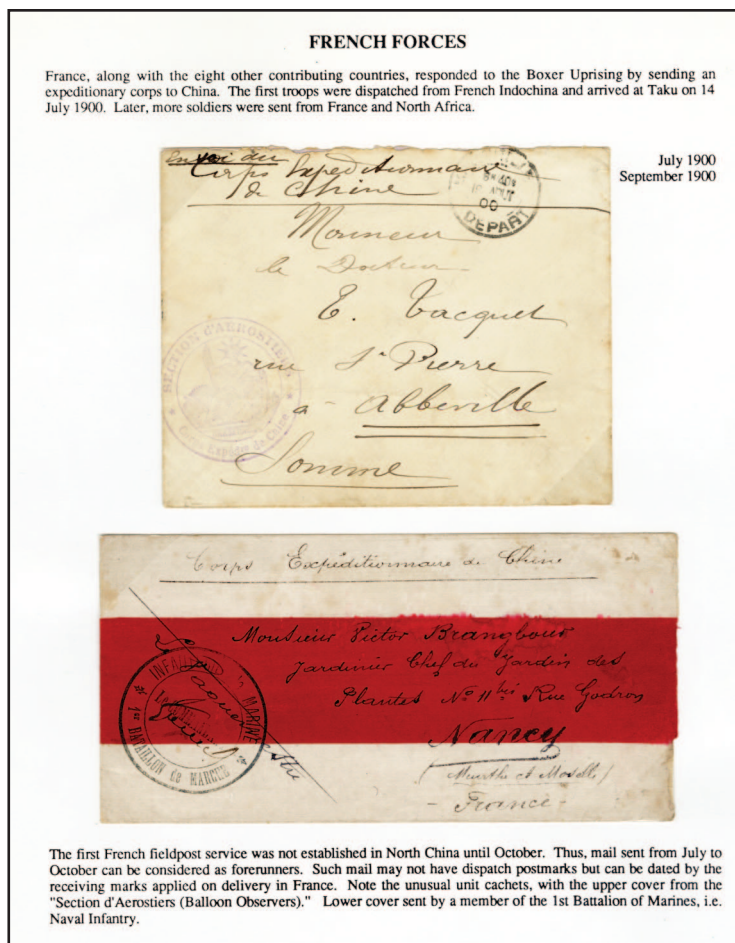 FRENCH FORCES
France, along with the eight other contributing countries, responded to the Boxer Uprising by sending an
expeditionary corps to China. The first troops were dispatched from French Indochina and arrived at Taku on 14
July 1900. Later, more soldiers were sent from France and North Africa.
July 1900
September 1900
Envoi du
Corps Expeditionnaire
de Chine
00
DEPART
Monsieur
le Docteur
E. Vacquet
rue St Pierre
a Abbeville
Somme
SECTION d'AEROSTIERS
Corps Expédre de Chine
Corps Expéditionnaire de Chine
Monsieur Victor Brangbour
Jardinier Chef du Jardin des
Plantes No 11 bis Rue Godron
Nancy
(Meurthe et Moselle)
- France -
INFANTERIE de MARINE
1er BATAILLON de MARCHE
The first French fieldpost service was not established in North China until October. Thus, mail sent from July to
October can be considered as forerunners. Such mail may not have dispatch postmarks but can be dated by the
receiving marks applied on delivery in France. Note the unusual unit cachets, with the upper cover from the
"Section d'Aerostiers (Balloon Observers)." Lower cover sent by a member of the 1st Battalion of Marines, i.e.
Naval Infantry.